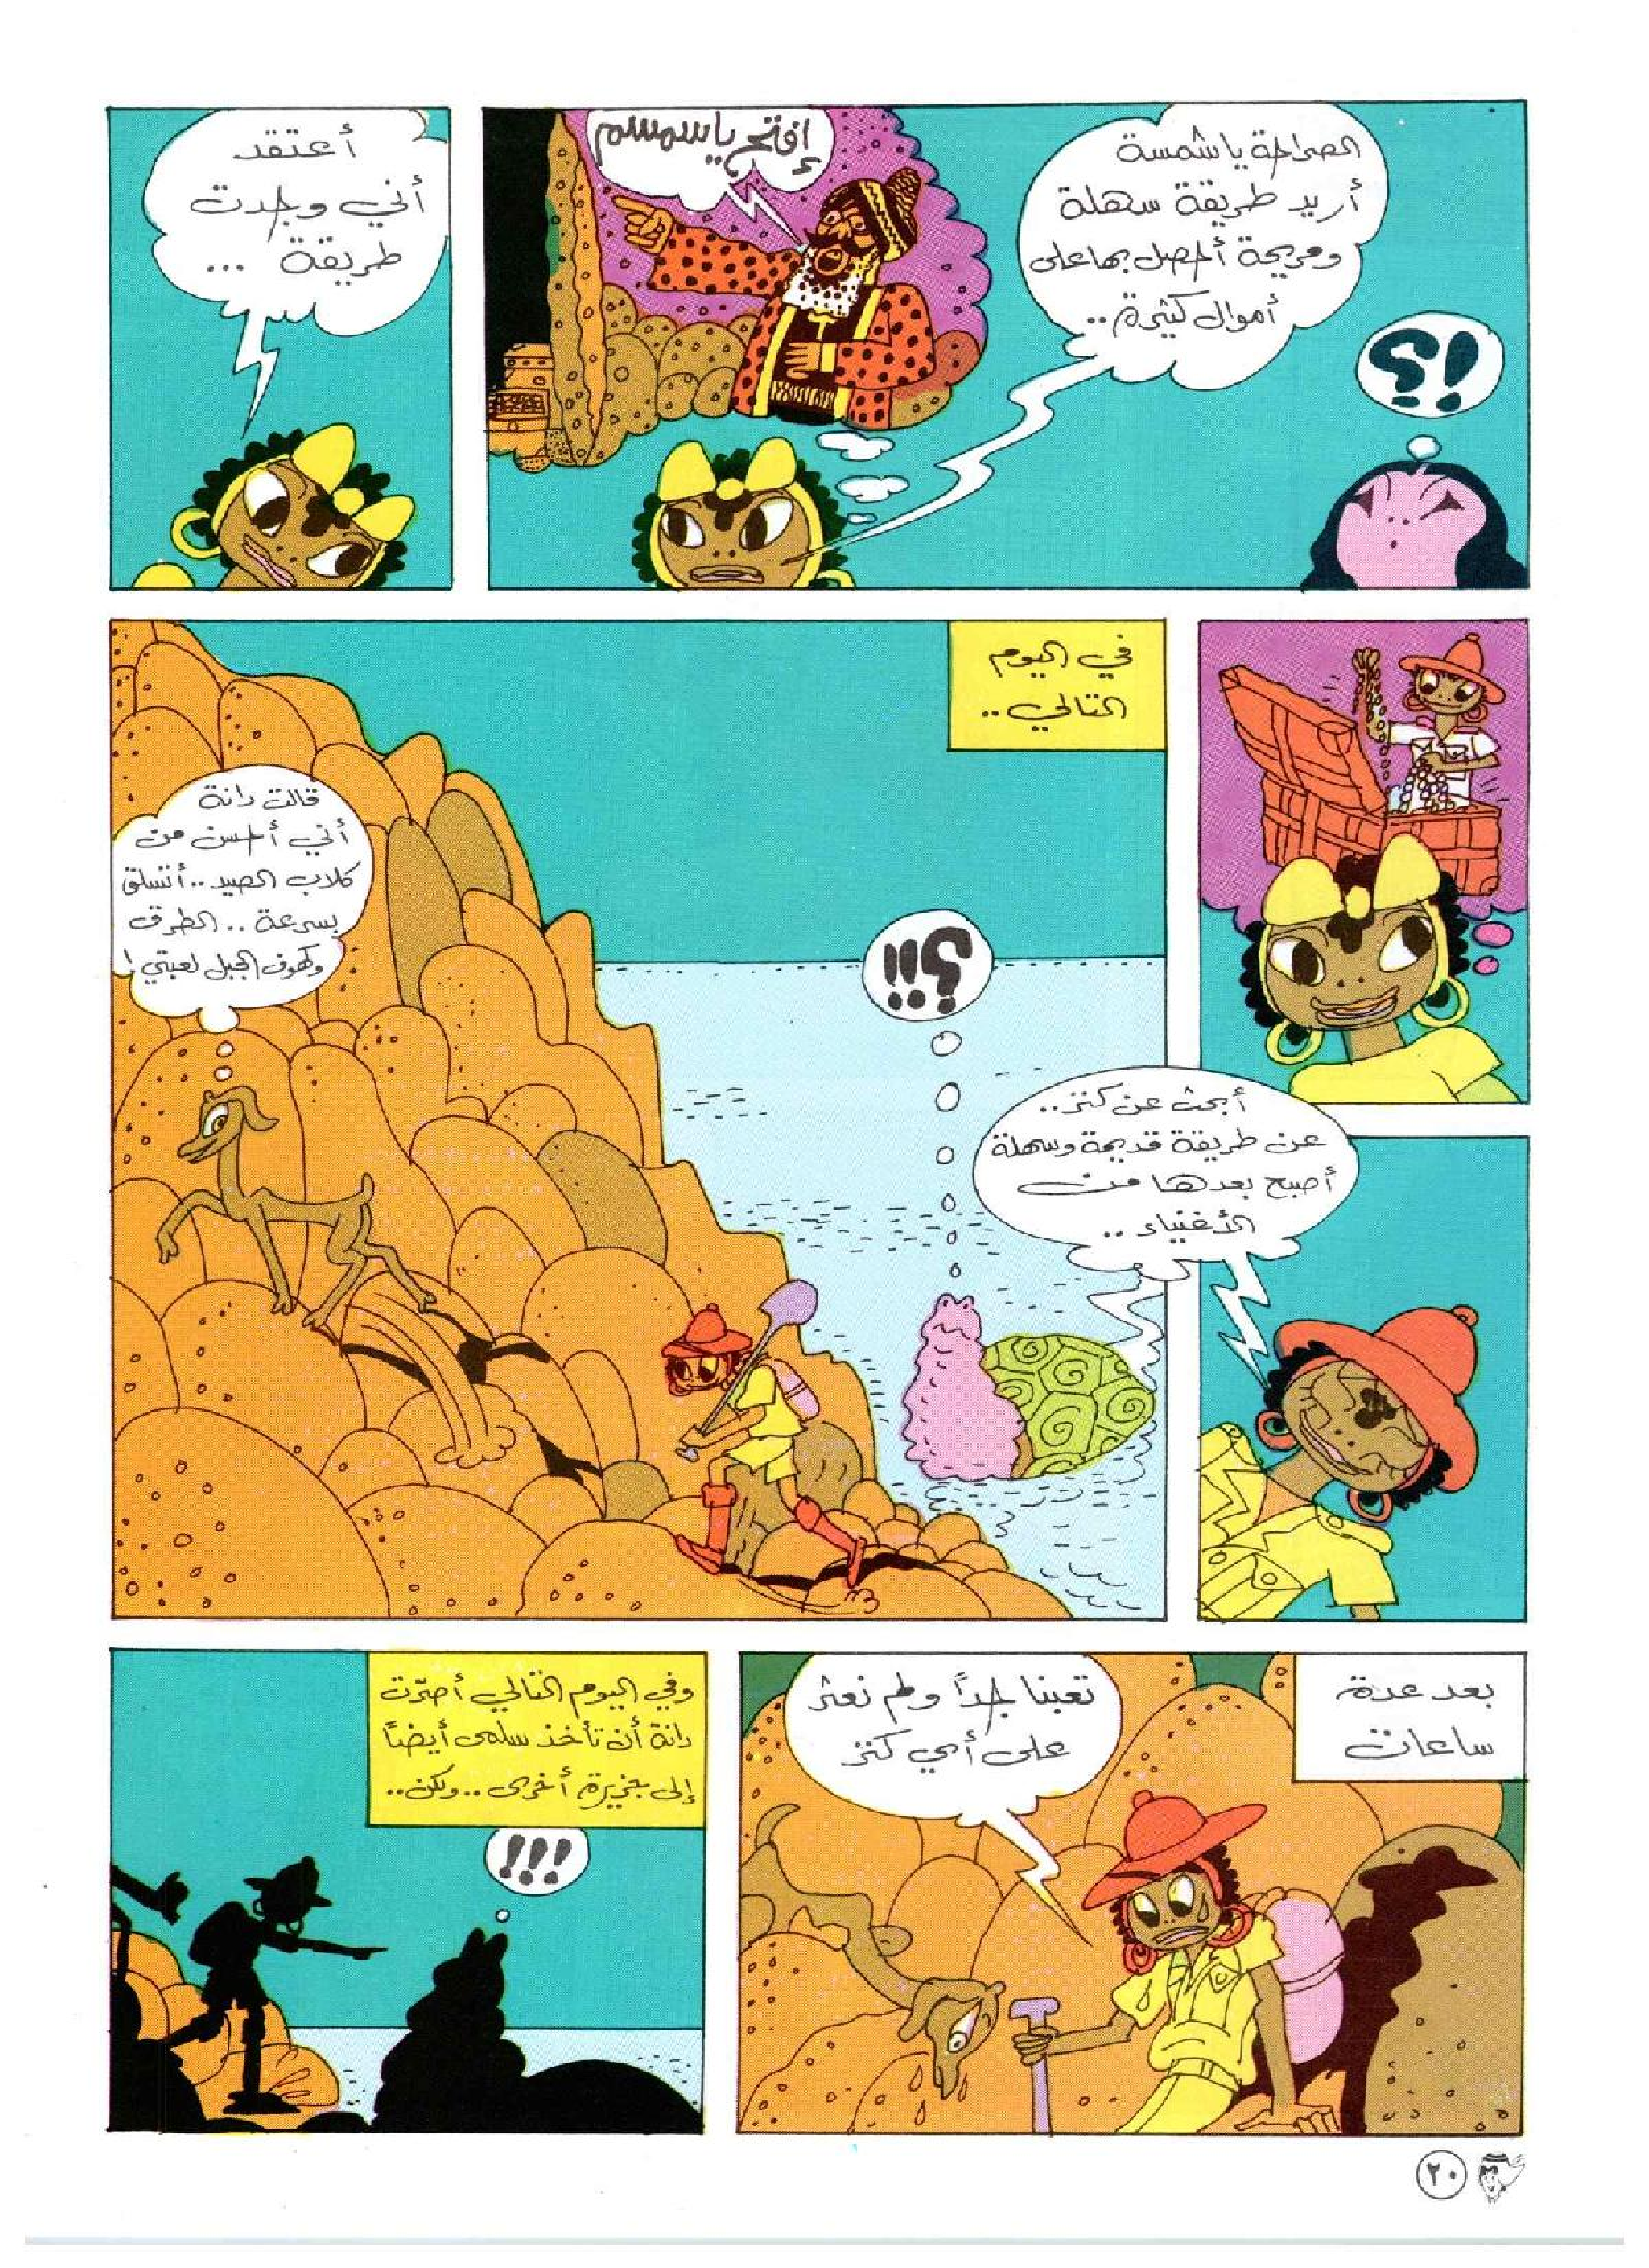 الصراحة ياشمسة
أريد طريقة سهلة
ومريحة أحصل بها على
أموال كثيرة..
!؟
إفتح ياسمسم
أعتقد
أني وجدت
طريقة ...
في اليوم
التالي..
أبحث عن كنز..
عن طريقة قديمة وسهلة
أصبح بعدها من
الأغنياء..
؟!!
قالت دانة
أني أحسن من
كلاب الصيد.. أتسلق
بسرعة.. الطرق
وكهوف الجبل لعبتي!
بعد عدة
ساعات
تعبنا جداً ولم نعثر
على أي كنز
وفي اليوم التالي أصرّت
دانة أن تأخذ سلمى أيضاً
إلى جزيرة أخرى.. ولكن..
!!!
٢٠